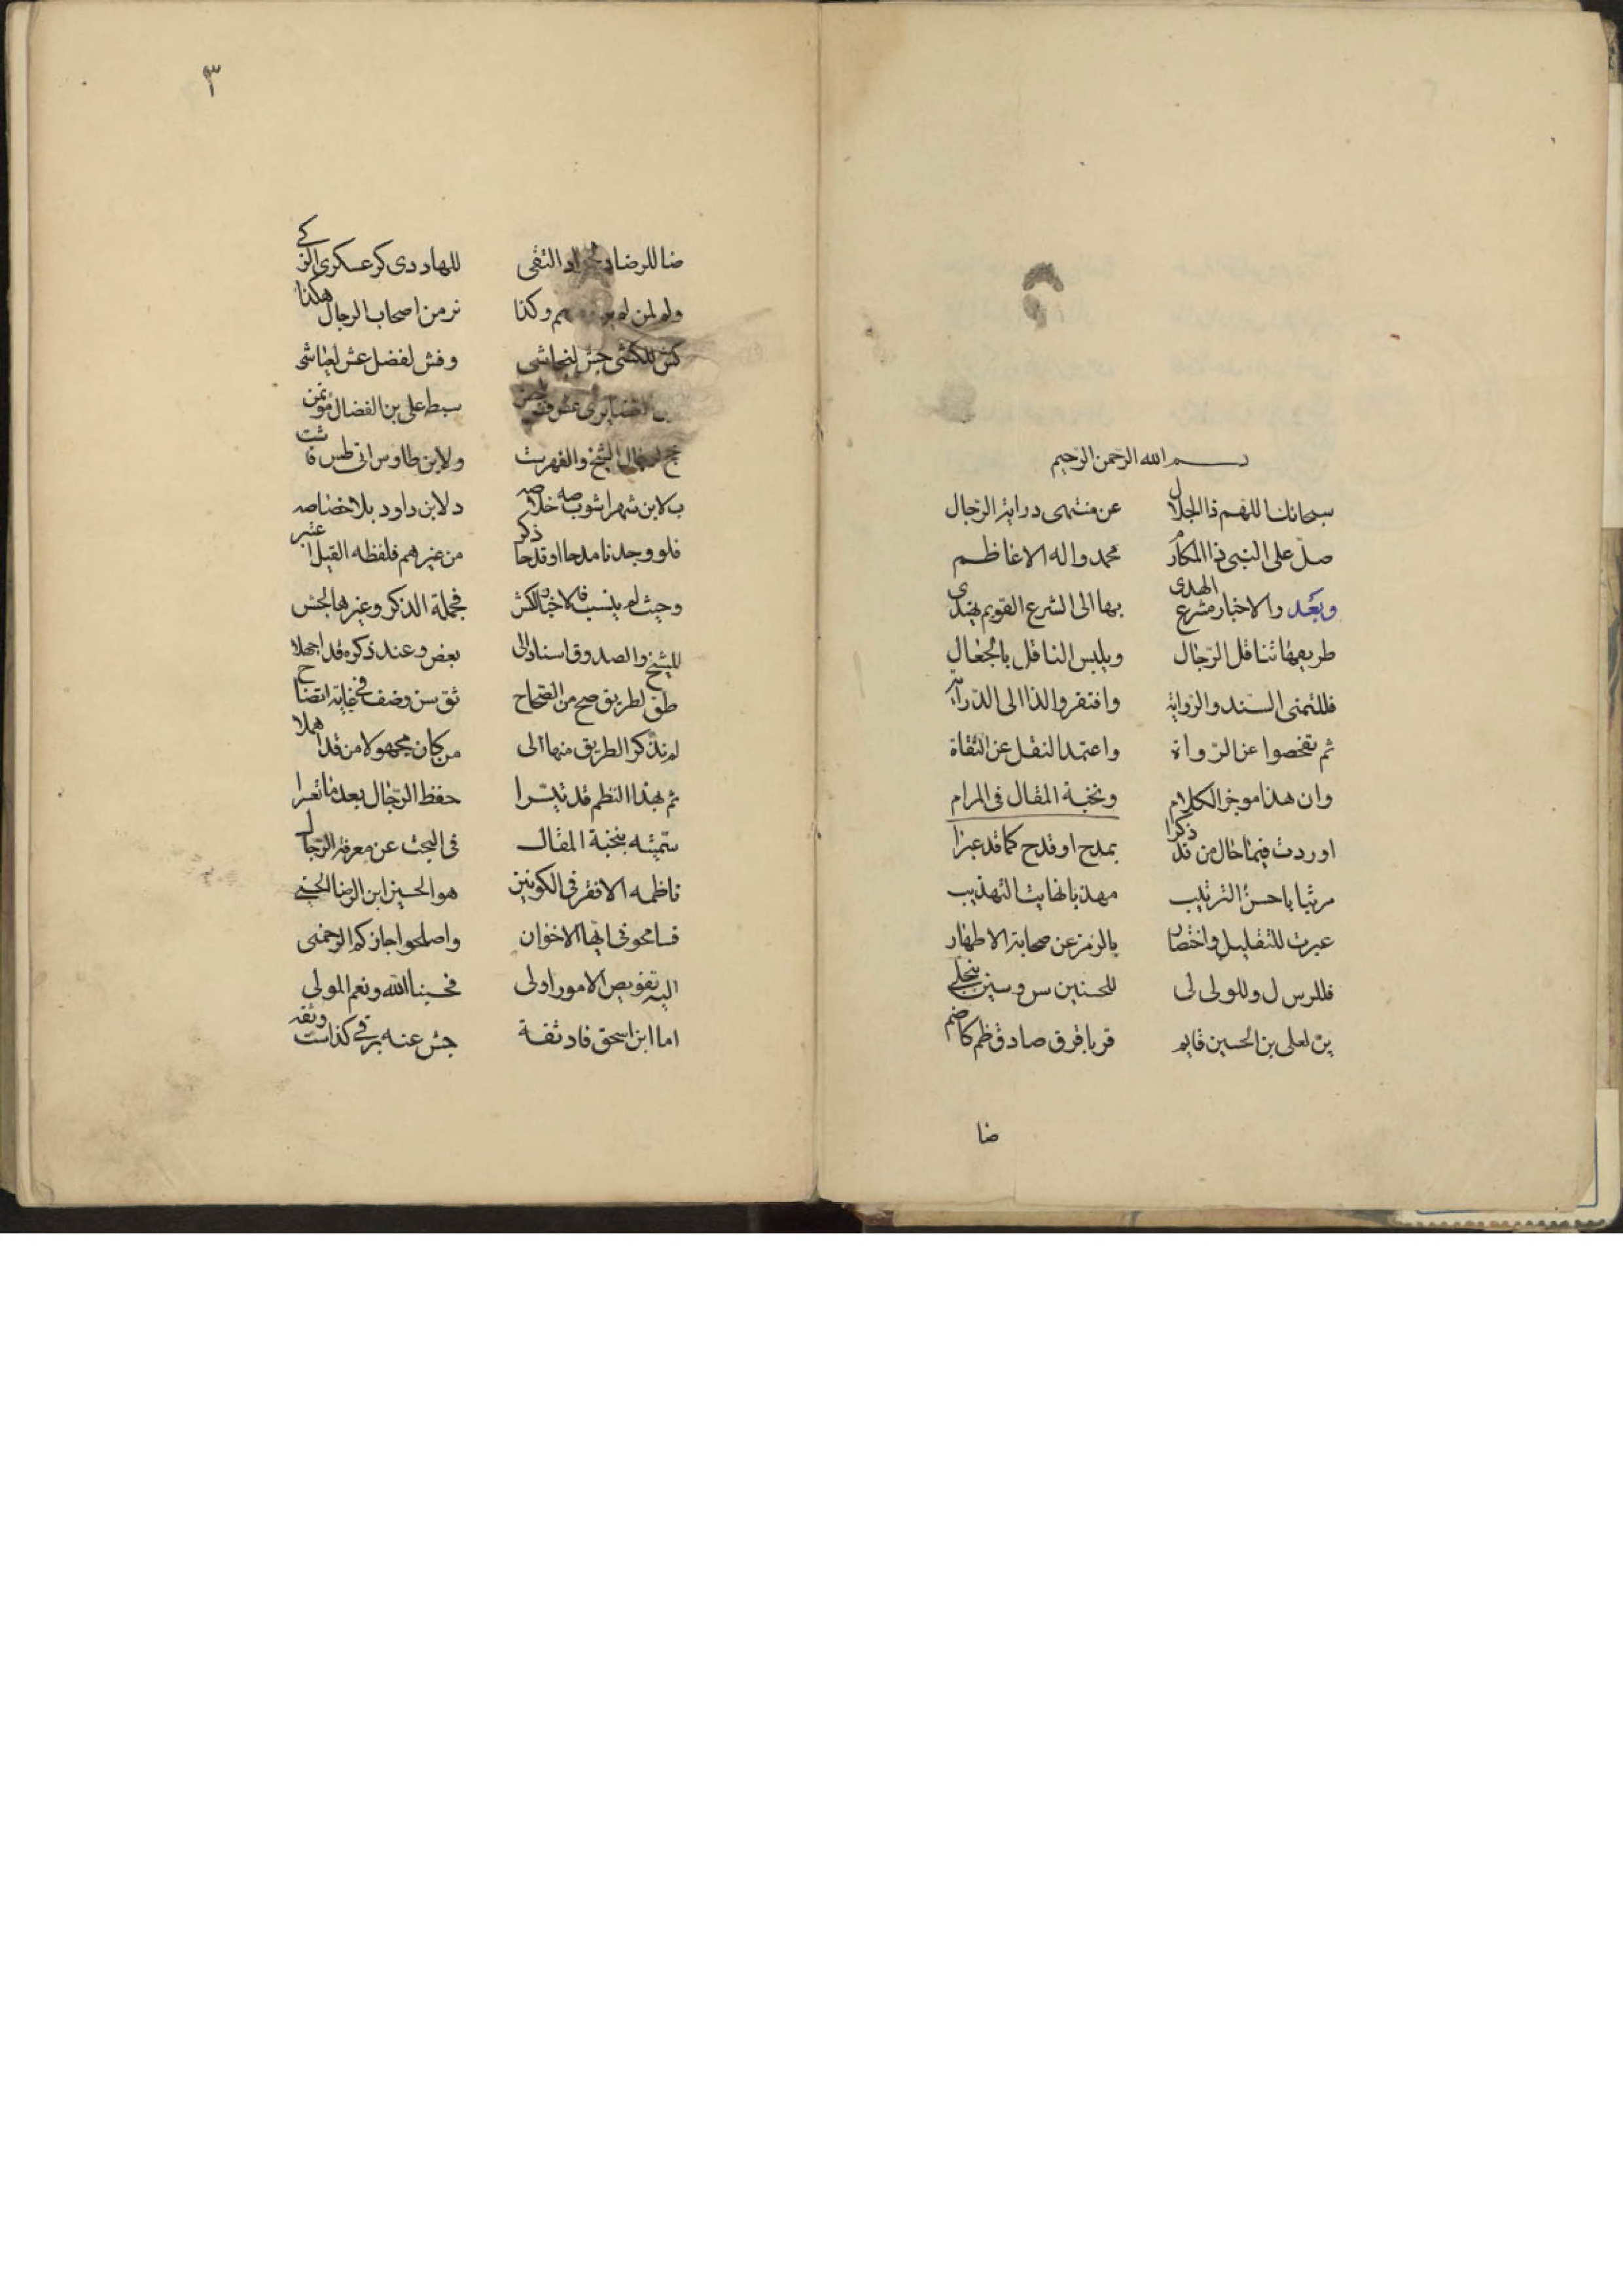 بسم الله الرحمن الرحيم
سبحانك اللهم ذا الجلال عن منتهى دراية الرجال
صل على النبي ذا المكارم محمد واله الاعاظم
وبعد والاخبار مشرع الهدى بها الى الشرع القويم يهتدى
طريقها تناقل الرجال ويلبس الناقل بالجعال
فللثمنى السند والرواية وافتقروا لذا الى الدراية
ثم تفحصوا عن الرواة واعتمد النقل عن الثقاة
وان هذا موجز الكلام ونخبة المقال في المرام
اوردت فيها حال من قد ذكرا بمدح او قدح كما قد عبرا
مرتبا باحسن الترتيب مهذبا نهاية التهذيب
عبرت للتقليل واختصار بالرمز عن صحابة الاطهار
فللرسول ل وللولى لى للحسنين س وسين ينجلي
ين لعلى بن الحسين قايم قر باقر ق صادق ظم كاضم
ضا
٣
ضا للرضا د لجواد التقى للهاد دى كر عسكرى الزكي
ولم لمن لم يرو وكذا نر من اصحاب الرجال هكذا
كش للكشى جش لنجاشى وفش لفضل عش لعياشى
سبط على بن الفضال مؤتمن
جخ لرجال الشيخ والفهرست ولابن طاوس اتى طس
ب لابن شهراشوب صه خلاصه د لابن داود بلا خصاصه
فلو وجدنا مدحا او قدحا ذكر من غيرهم فلفظه القيل اعتبر
وحيث لم ينسب فالاخبار للكش فجملة الذكر وغيرها لجش
للشيخ والصدوق اسناد الى بعض وعند ذكره قد اجملا
طق لطريق صح من الصحاح ثق سن وضف في غاية اتضاح
لم نذكر الطريق منها الى من كان مجهولا من قد اهملا
ثم بهذا النظم قد تيسرا حفظ الرجال بعد ما تعسرا
سميته بنخبة المقال في البحث عن معرفة الرجال
ناظمه الافقر في الكونين هو الحسين ابن الرضا الحسيني
فسامحونى ايها الاخوان واصلحوا جازكم الرحمن
اليه تفويض الامور اولى فحسبنا الله ونعم المولى
اما ابن اسحق فاد ثقة جش عنه برقي كذا ست وثقه